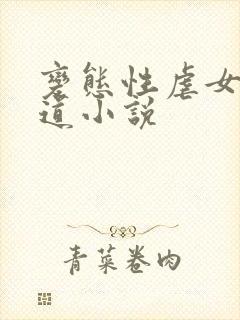 褻態性虐女
道小說
青菜卷肉